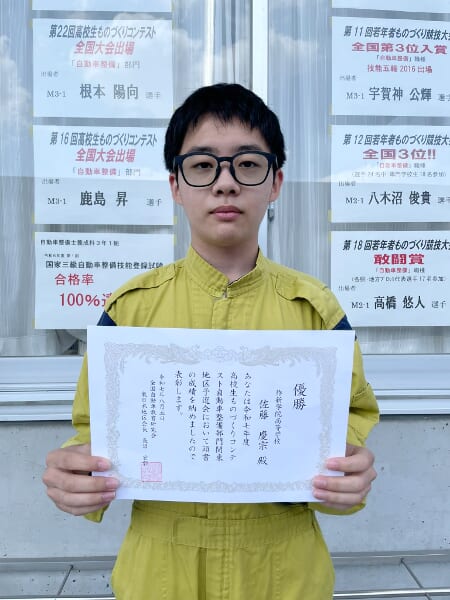 第22回高校生ものづくりコンテスト
全国大会出場
「自動車整備」部門
出場者
M3-1 根本 陽向 選手
第16回高校生ものづくりコンテスト
全国大会出場
「自動車整備」部門
出場者
M3-1 鹿島 昇 選手
自動車整備士養成科3年1組
国家三級自動車整備技能登録試験
合格率
100%
第11回若年者ものづくり競技大
全国第3位入賞
「自動車整備」職種
技能五輪2016出場
出場者
M3-1 宇賀神 公輝 選手
第12回若年者ものづくり競技大
全国第3位!!
「自動車整備」職種
出場者
M2-1 八木沼 俊貴 選手
第18回若年者ものづくり競技大
敢闘賞
「自動車整備」職種
出場者
M2-1 高橋 悠人 選手
優勝
作新学院高等学校
佐藤 慶宗 殿
あなたは令和七年度
高校生ものづくりコンテ
スト自動車整備部門関東
地区予選会において頭書
の成績を納めましたので
表彰します。
令和七年八月五日
全国自動車教育研究会